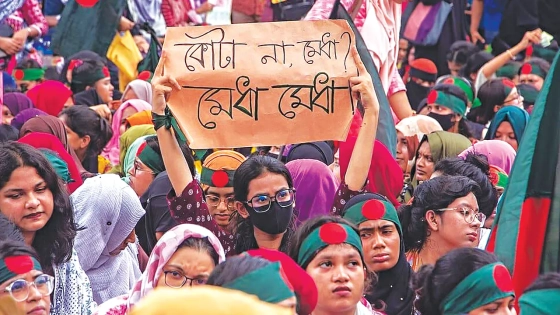 কোটা না, মেধা?
মেধা মেধা